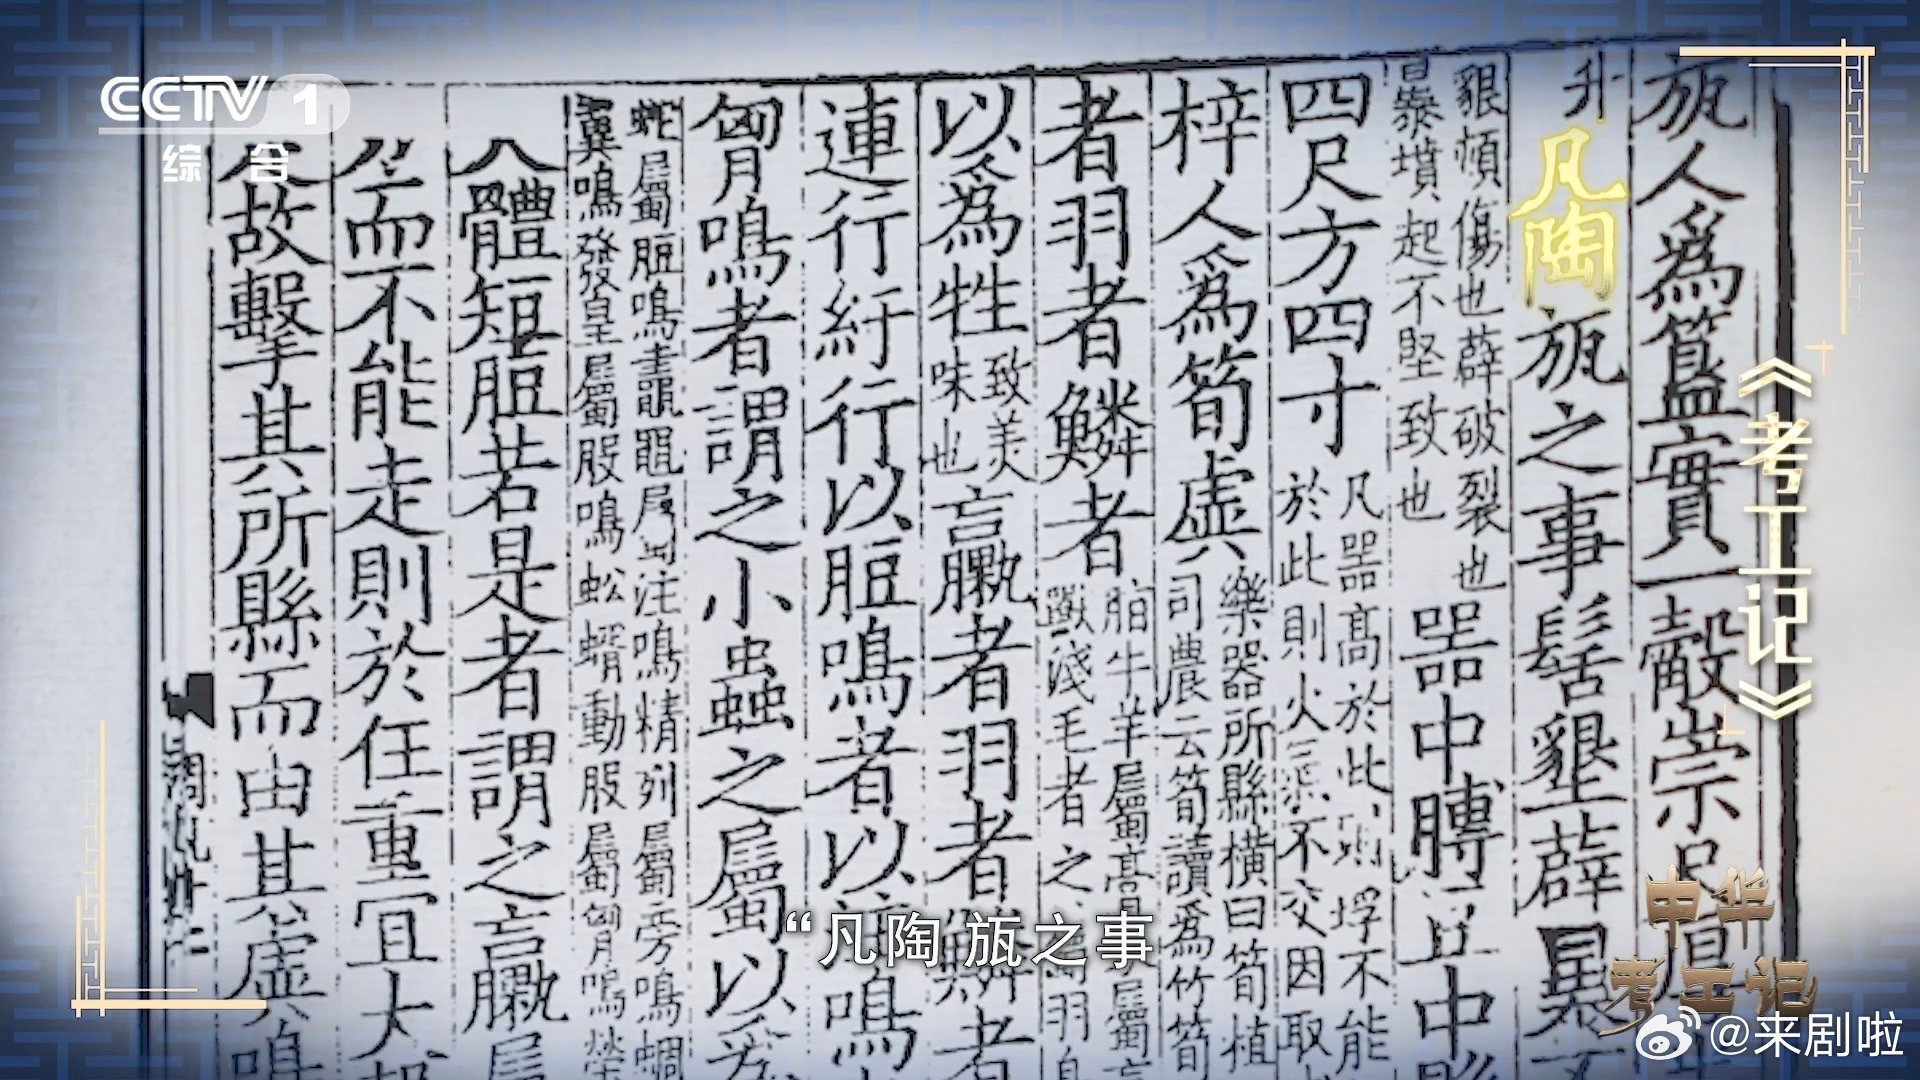 CCTV 1
综合
瓬人為簋實一觳崇尺厚
升凡陶瓬之事髺墾薜暴
墾頓傷也薜破裂也
暴墳起不堅致也
器中膊豆中縣
四尺方四寸
凡器高於此則垺不能
於此則火氣不交因取
梓人為筍虡
樂器所縣橫曰筍植
司農云筍讀為竹筍
者羽者鱗者
脂牛羊屬膏
淺毛者之
以為牲
致美
味也
臝者羽者鱗者
連行紆行以脰鳴者以注鳴
匈鳴者謂之小蟲之屬以為
蛇屬脰鳴鼃黽屬注鳴精列屬旁鳴蜩
翼鳴發皇屬股鳴蚣蝑動股屬匈鳴榮
大體短脰若是者謂之臝屬
而不能走則於任重宜大
故擊其所縣而由其虡鳴
《考工记》
“凡陶瓬之事
中华
考工记
@来剧啦